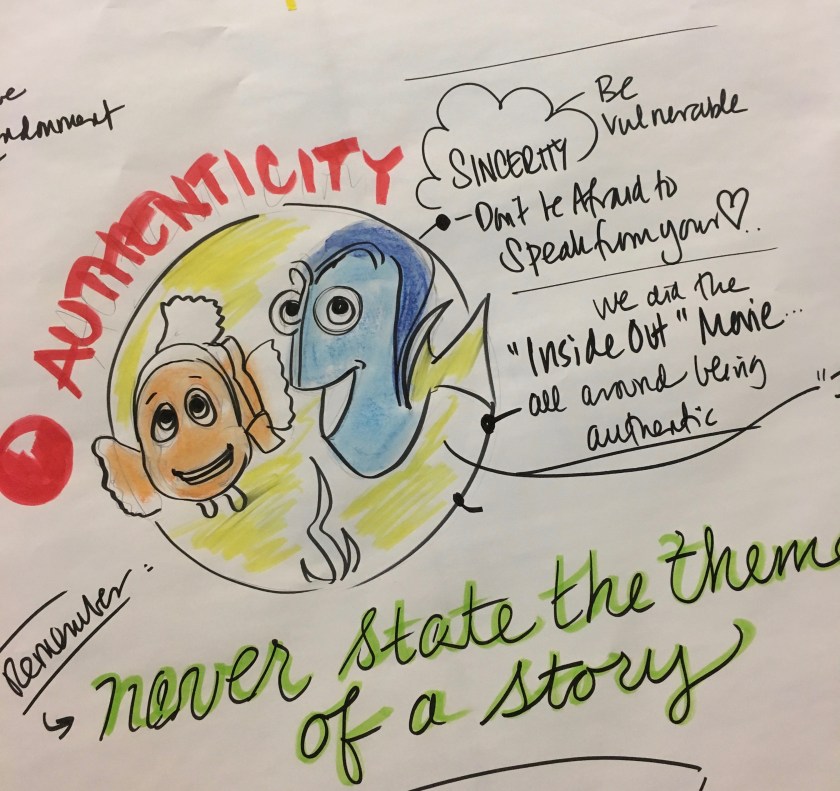 AUTHENTICITY
SINCERITY
Be
Vulnerable
- Don't be Afraid to
Speak from your ♡..
We did the
"Inside Out" Movie...
all around being
authentic
Remember:
never state the theme
of a story